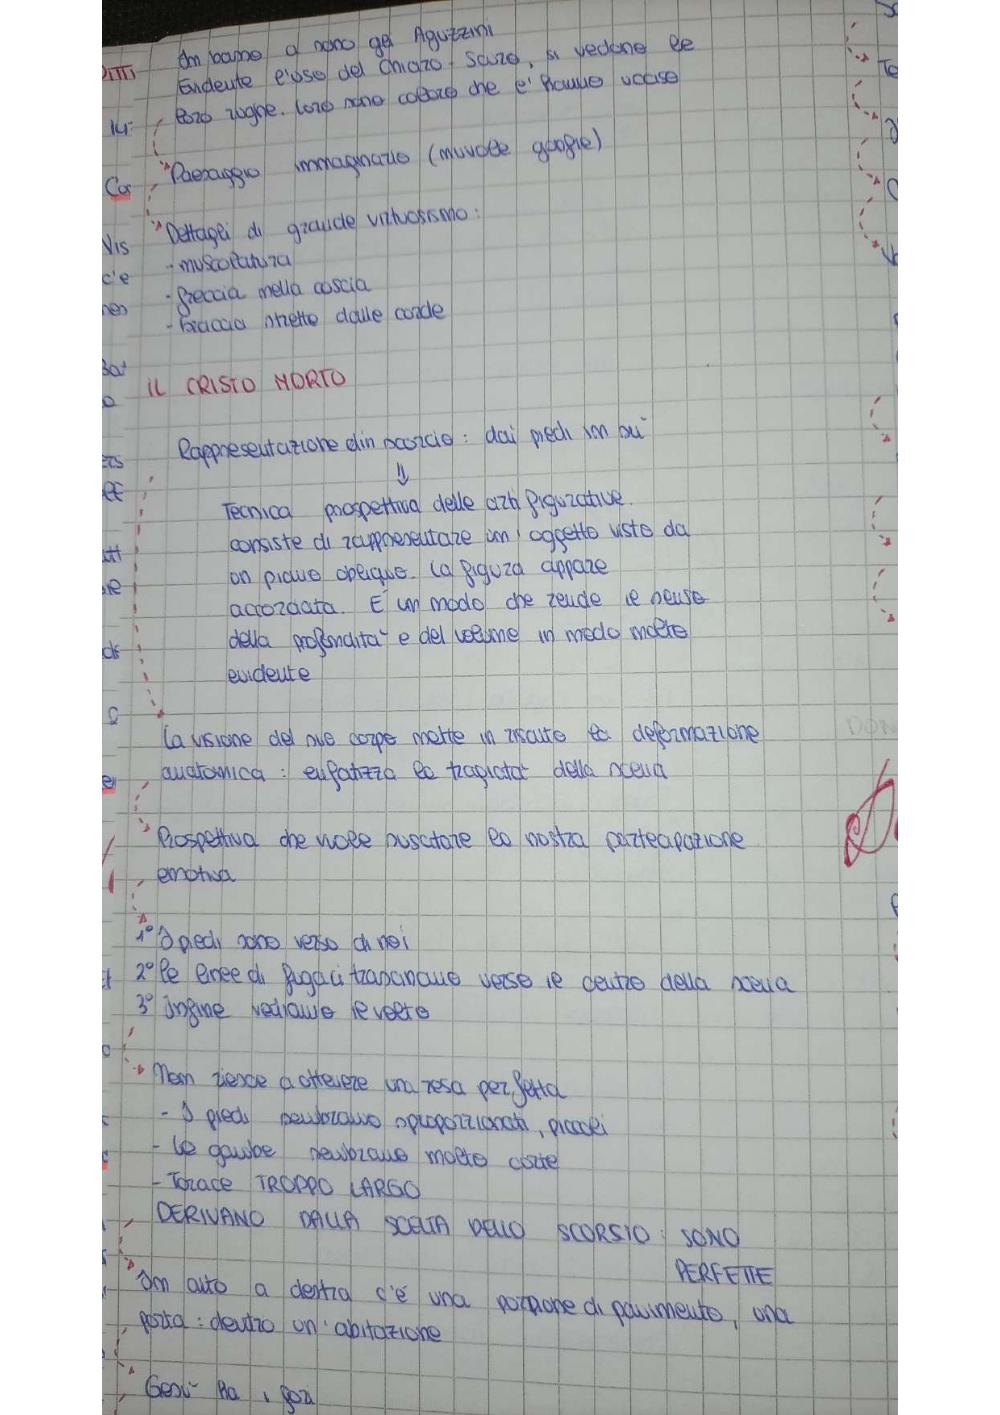 In basso a sono gli Aguzzini
Evidente l'uso del chiaro-scuro, si vedono le
loro rughe. loro sono coloro che l'hanno ucciso
Paesaggio immaginario (nuvole goffie)
Dettagli di grande virtuosismo:
- muscolatura
- freccia nella coscia
- braccia strette dalle corde
IL CRISTO MORTO
Rappresentazione di in scorcio: dai piedi in su
⇓
Tecnica prospettiva delle arti figurative.
consiste di rappresentare un oggetto visto da
un piano obliquo. La figura appare
accorciata. E' un modo che rende il senso
della profondità e del volume in modo molto
evidente
La visione del suo corpo mette in risalto la deformazione
anatomica: enfatizza la tragicità della scena
Prospettiva che vuole suscitare la nostra partecipazione
emotiva
1° I piedi sono verso di noi
2° le linee di fuga ci trascinano verso il centro della scena
3° Infine vediamo il volto
Non riesce a ottenere una resa perfetta
- I piedi sembrano sproporzionati, piccoli
- Le gambe sembrano molto corte
- Torace TROPPO LARGO
DERIVANO DALLA SCELTA DELLO SCORSIO: SONO
PERFETTE
In alto a destra c'è una porzione di pavimento, una
porta: dentro un'abitazione
Gesù ha i fori